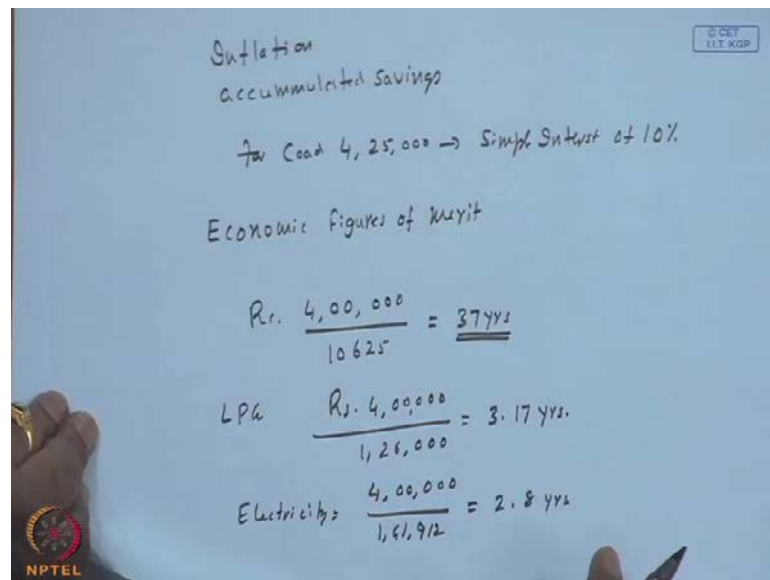 © CET
I.I.T. KGP
Inflation
accummulated Savings
For Coad 4,25,000 → Simple Interst of 10%
Economic figures of merit
Rs. 4,00,000 / 10625 = 37 yrs
LPG Rs. 4,00,000 / 1,26,000 = 3.17 yrs.
Electricity: 4,00,000 / 1,41,912 = 2.8 yrs
NPTEL